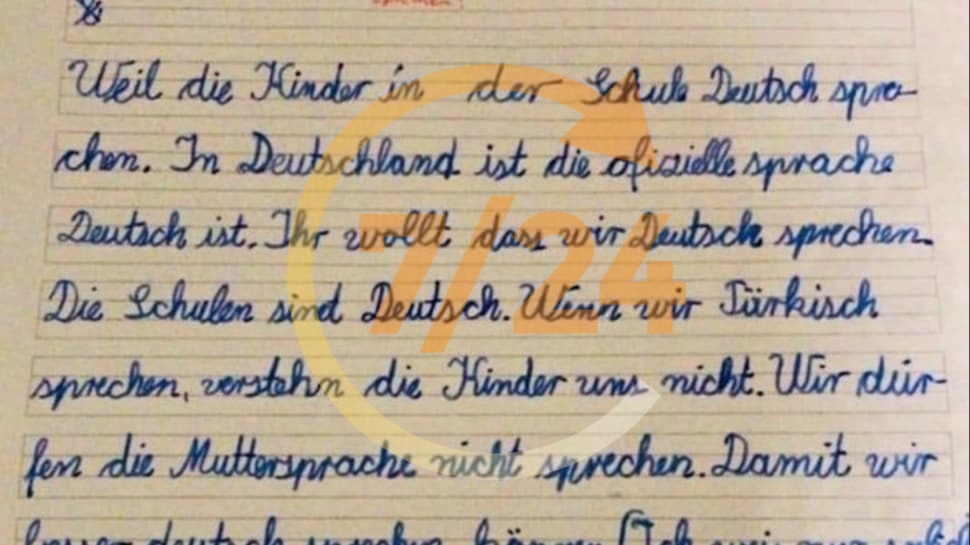 Weil die Kinder in der Schule Deutsch spre-
chen. In Deutschland ist die ofizielle sprache
Deutsch ist. Ihr wollt dass wir Deutsch sprechen.
Die Schulen sind Deutsch. Wenn wir Türkisch
sprechen, verstehn die Kinder uns nicht. Wir dür-
fen die Muttersprache nicht sprechen. Damit wir
7/24